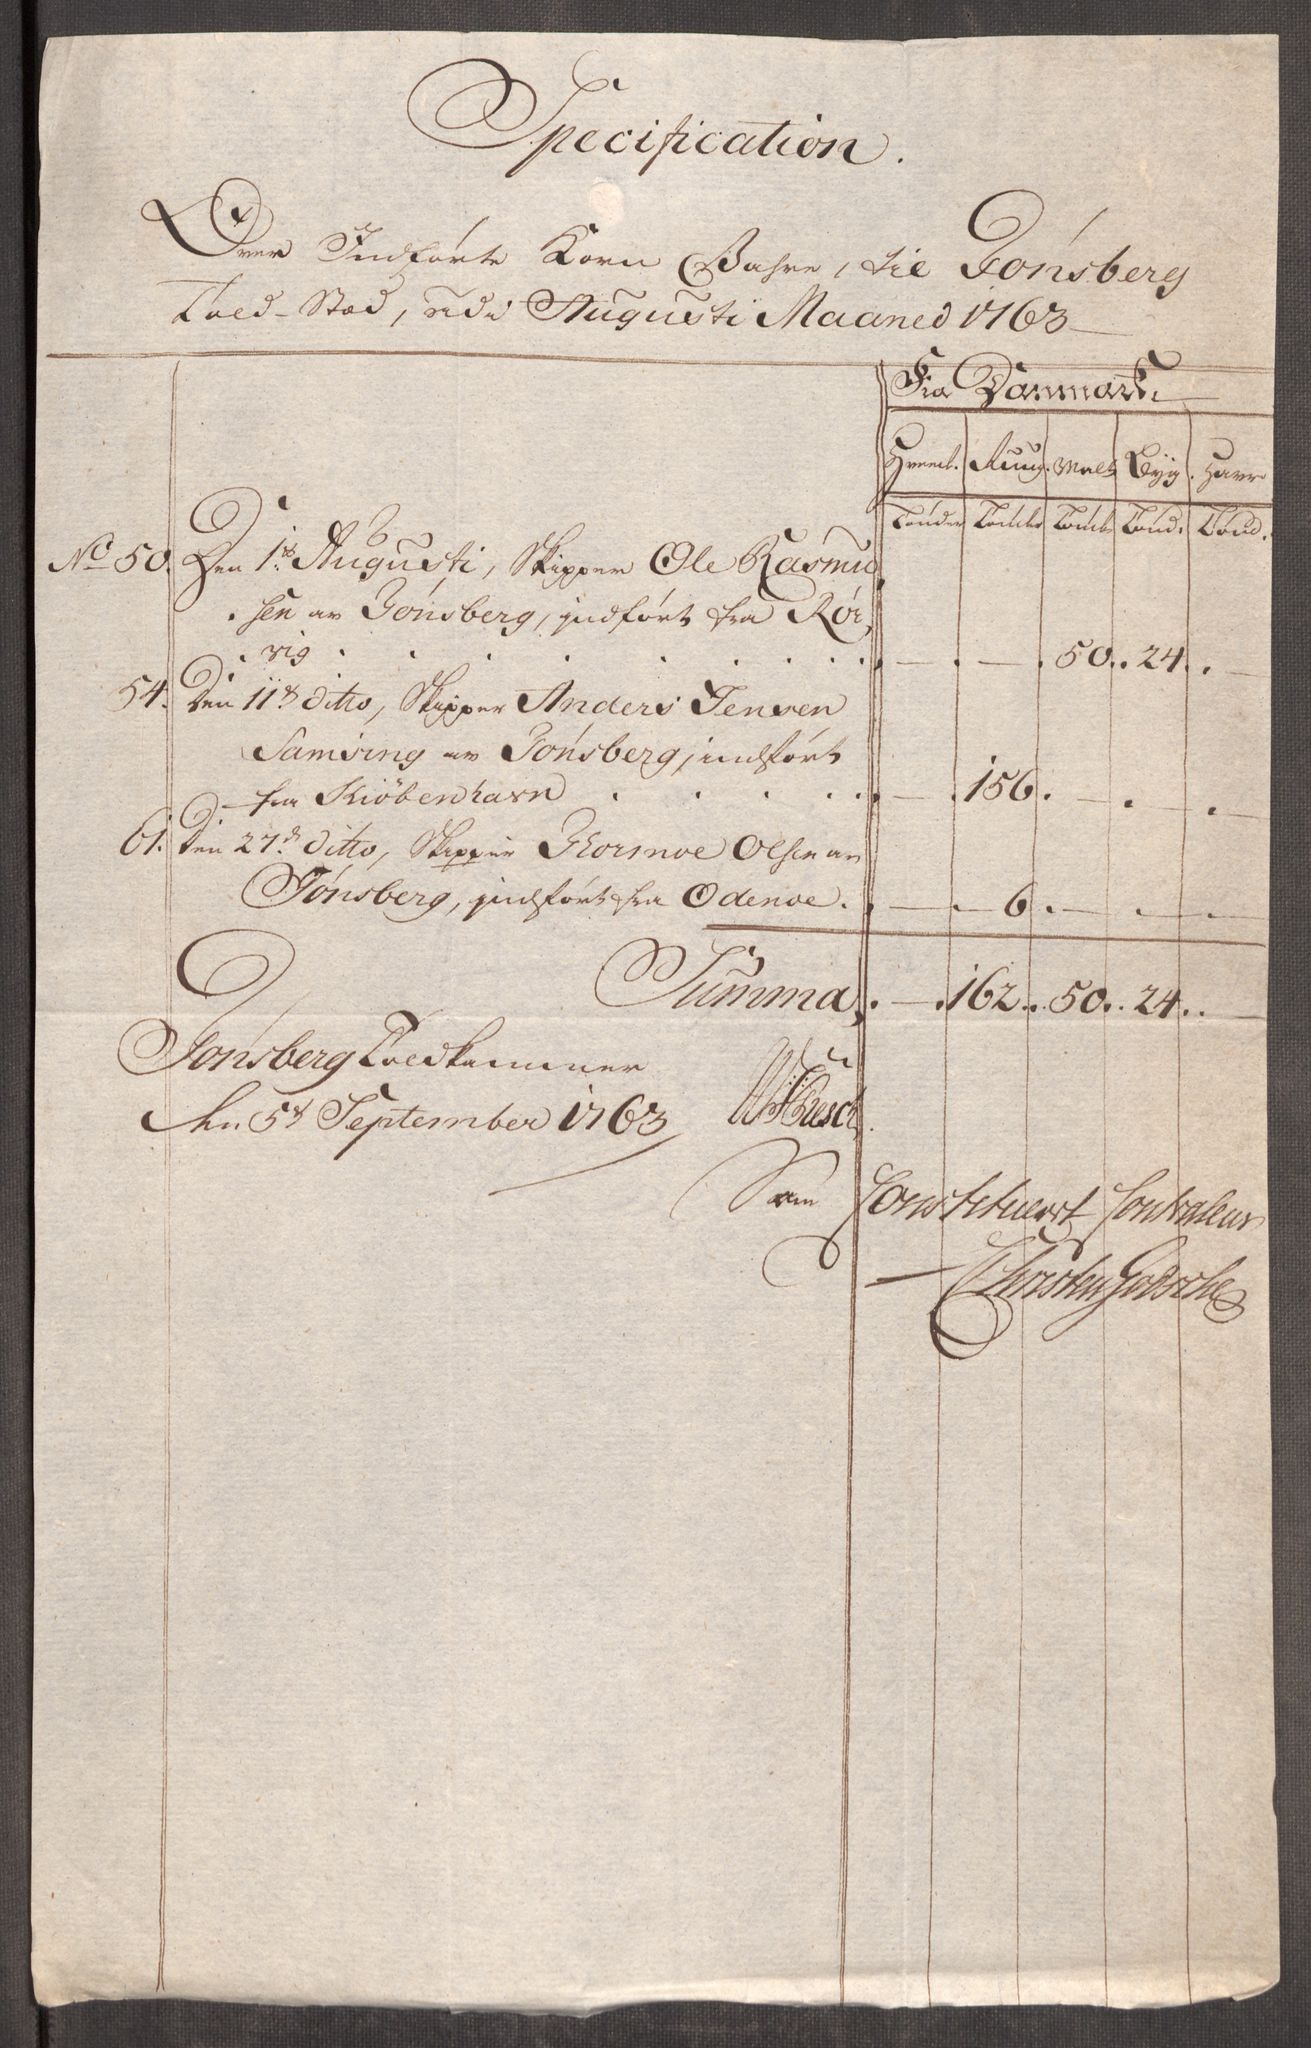 Specification.
Over Indførte Korn Vahre, til Tønsberg
Told-Stæd, udi Augusti Maaned 1763
Fra Danmark
Hveed. Ruug. Malt Byg. Havre
Tønder Tønder Tønder Tønd. Tønd.
No 50. Den 1t Augusti, Skipper Ole Rasmu
sen av Tønsberg, indført fra Rør
vig . . . . . . . . . — . — . 50 .. 24 .. —
54. Den 11t ditto, Skipper Anders Jensen
Samsing av Tønsberg, indført
fra Kiöbenhavn . . . . . — . 156 . — . — .
61. Den 27d ditto, Skipper Thormoe Olsen av
Tønsberg, indført fra Odense . . — . 6 . — . — . —
Summa . — . 162 .. 50 .. 24 .. —
Tønsberg Toldkammer
den 5t September 1763
Som Constitueret Contraleur
Christen Godsche